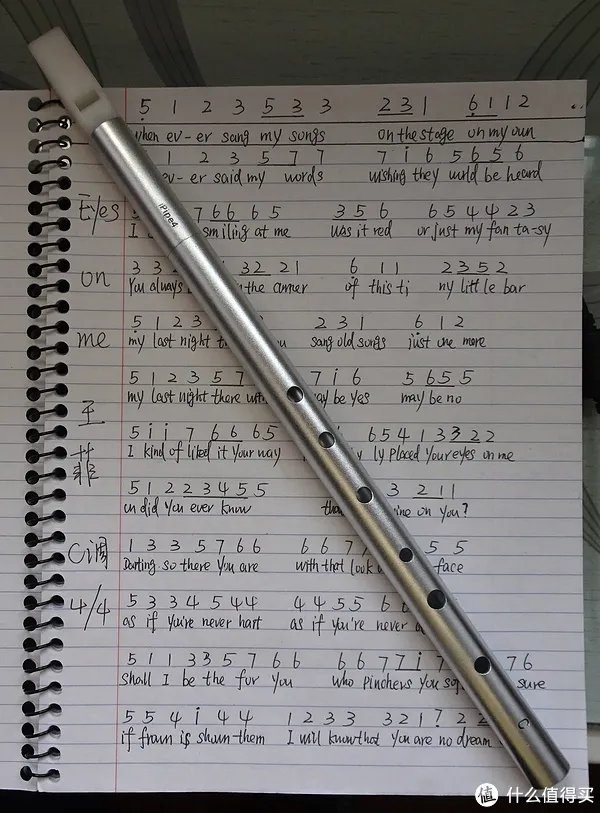 5 1 2 3 5 3 3 2 3 1 6 1 1 2
when ev-er sang my songs on the stage on my own
1 2 3 5 7 7 7 i 6 5 6 5 6
ev-er said my words wishing they wuld be heard
Eyes 7 6 6 6 5 3 5 6 6 5 4 4 2 3
I smiling at me was it red or just my fan-ta-sy
on 3 3 3 2 2 1 6 1 1 2 3 5 2
You always the corner of this ti ny little bar
me 5 1 2 3 2 3 1 6 1 2
my last night sang old songs just one more
5 1 2 3 5 7 7 i 6 5 6 5 5
my last night there with may be yes may be no
王 5 i i 7 6 6 6 5 6 5 4 1 3 3 2 2
菲 I kind of liked it your way ly placed your eyes on me
5 1 2 2 3 4 5 5 3 2 1 1
on did you ever know on you?
C调 1 3 3 5 7 6 6 6 6 7 5 5
Darling so there you are with that look face
4/4 5 3 3 4 5 4 4 4 4 5 5 6
as if you're never hurt as if you're never
5 1 1 3 3 5 7 6 6 6 6 7 7 i 7 7 6
shall I be the for you who pinchers you sure
5 5 4 i 4 4 1 2 3 3 3 2 1 7 2 2
if frown is shown them I will know that you are no dream
iPipe4
值 什么值得买